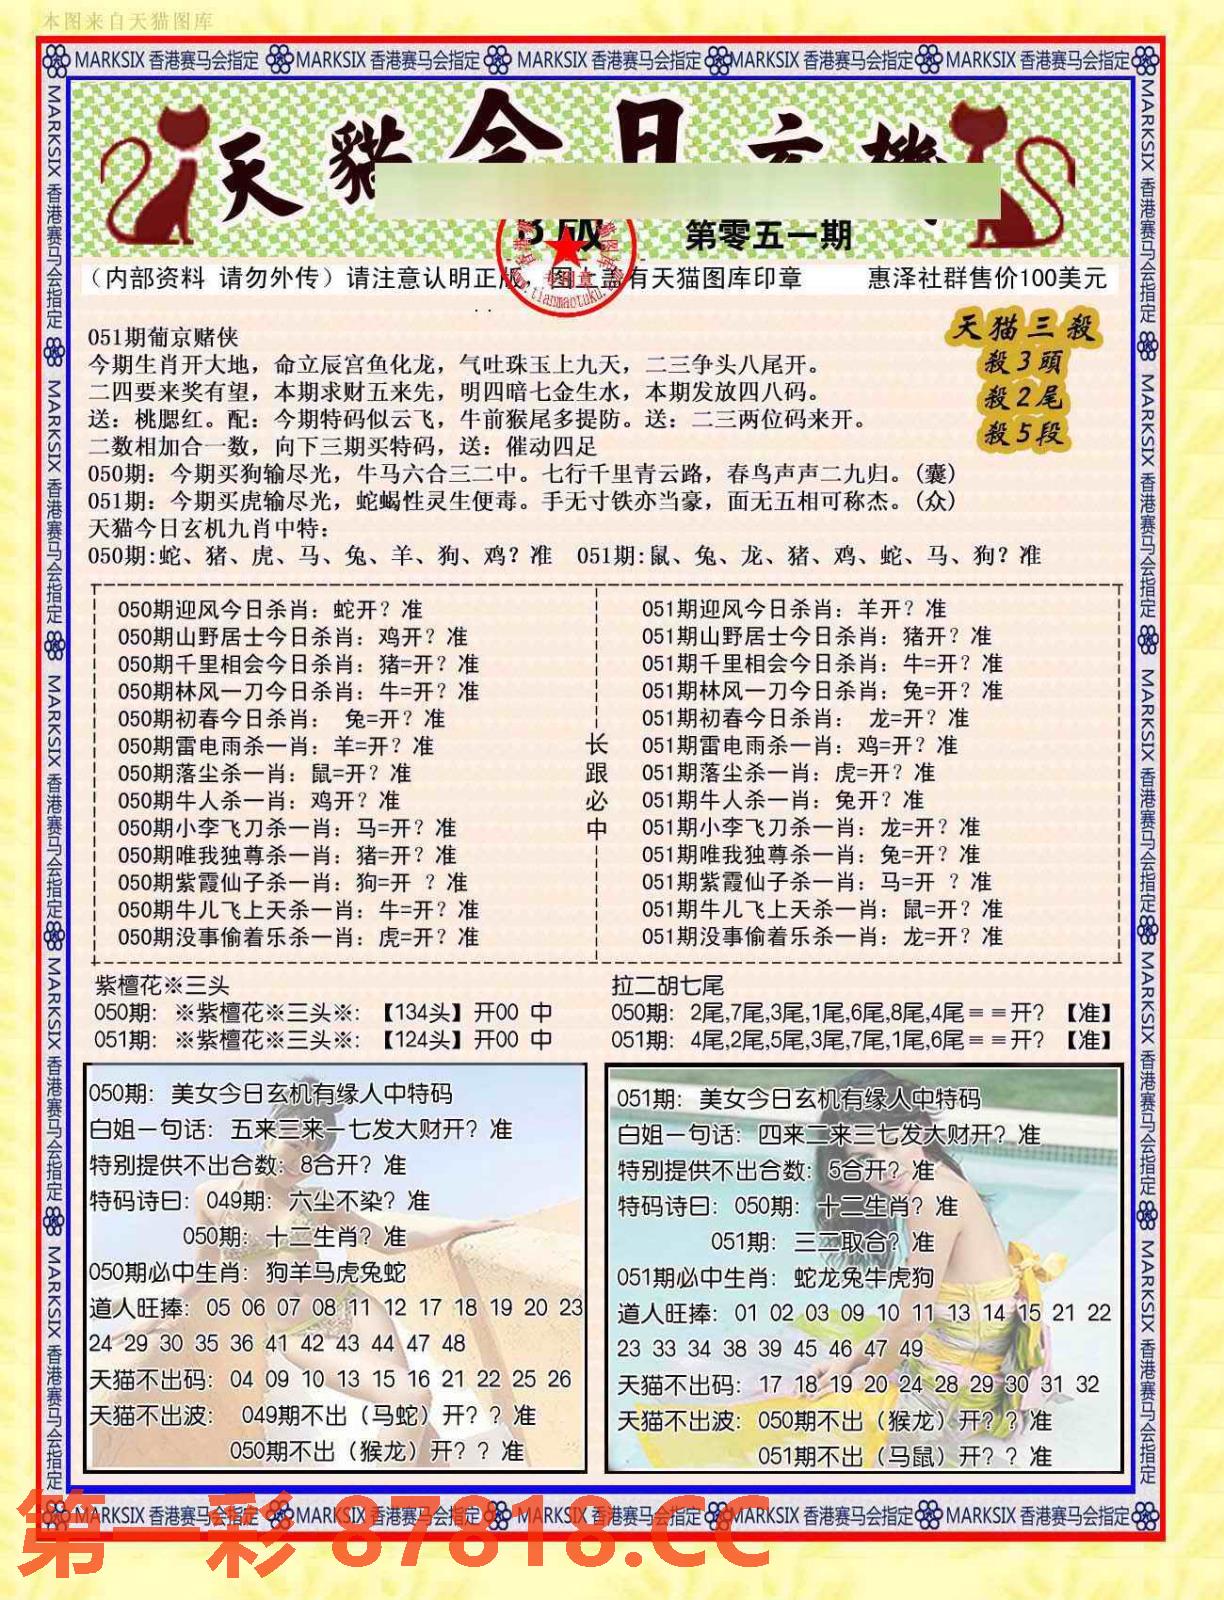 本图来自天猫图库
MARKSIX 香港赛马会指定 MARKSIX 香港赛马会指定 MARKSIX 香港赛马会指定 MARKSIX 香港赛马会指定 MARKSIX 香港赛马会指定
天貓今日玄機
B版 第零五一期
（内部资料 请勿外传）请注意认明正版 图上盖有天猫图库印章 惠泽社群售价100美元
天猫三殺
殺3頭
殺2尾
殺5段
051期葡京赌侠
今期生肖开大地，命立辰宫鱼化龙，气吐珠玉上九天，二三争头八尾开。
二四要来奖有望，本期求财五来先，明四暗七金生水，本期发放四八码。
送：桃腮红。配：今期特码似云飞，牛前猴尾多提防。送：二三两位码来开。
二数相加合一数，向下三期买特码，送：催动四足
050期：今期买狗输尽光，牛马六合三二中。七行千里青云路，春鸟声声二九归。(囊)
051期：今期买虎输尽光，蛇蝎性灵生便毒。手无寸铁亦当豪，面无五相可称杰。(众)
天猫今日玄机九肖中特：
050期:蛇、猪、虎、马、兔、羊、狗、鸡？准 051期:鼠、兔、龙、猪、鸡、蛇、马、狗？准
050期迎风今日杀肖：蛇开？准
050期山野居士今日杀肖：鸡开？准
050期千里相会今日杀肖：猪=开？准
050期林风一刀今日杀肖：牛=开？准
050期初春今日杀肖： 兔=开？准
050期雷电雨杀一肖：羊=开？准
050期落尘杀一肖：鼠=开？准
050期牛人杀一肖：鸡开？准
050期小李飞刀杀一肖：马=开？准
050期唯我独尊杀一肖：猪=开？准
050期紫霞仙子杀一肖：狗=开 ？准
050期牛儿飞上天杀一肖：牛=开？准
050期没事偷着乐杀一肖：虎=开？准
长
跟
必
中
051期迎风今日杀肖：羊开？准
051期山野居士今日杀肖：猪开？准
051期千里相会今日杀肖：牛=开？准
051期林风一刀今日杀肖：兔=开？准
051期初春今日杀肖： 龙=开？准
051期雷电雨杀一肖：鸡=开？准
051期落尘杀一肖：虎=开？准
051期牛人杀一肖：兔开？准
051期小李飞刀杀一肖：龙=开？准
051期唯我独尊杀一肖：兔=开？准
051期紫霞仙子杀一肖：马=开 ？准
051期牛儿飞上天杀一肖：鼠=开？准
051期没事偷着乐杀一肖：龙=开？准
紫檀花※三头
050期：※紫檀花※三头※：【134头】开00 中
051期：※紫檀花※三头※：【124头】开00 中
拉二胡七尾
050期：2尾,7尾,3尾,1尾,6尾,8尾,4尾＝＝开？【准】
051期：4尾,2尾,5尾,3尾,7尾,1尾,6尾＝＝开？【准】
050期：美女今日玄机有缘人中特码
白姐一句话：五来三来一七发大财开？准
特别提供不出合数：8合开？准
特码诗曰：049期：六尘不染？准
050期：十二生肖？准
050期必中生肖：狗羊马虎兔蛇
道人旺捧：05 06 07 08 11 12 17 18 19 20 23
24 29 30 35 36 41 42 43 44 47 48
天猫不出码：04 09 10 13 15 16 21 22 25 26
天猫不出波： 049期不出（马蛇）开？？准
050期不出（猴龙）开？？准
051期：美女今日玄机有缘人中特码
白姐一句话：四来二来三七发大财开？准
特别提供不出合数：5合开？准
特码诗曰：050期：十二生肖？准
051期：三二取合？准
051期必中生肖：蛇龙兔牛虎狗
道人旺捧：01 02 03 09 10 11 13 14 15 21 22
23 33 34 38 39 45 46 47 49
天猫不出码：17 18 19 20 24 28 29 30 31 32
天猫不出波：050期不出（猴龙）开？？准
051期不出（马鼠）开？？准
MARKSIX 香港赛马会指定 MARKSIX 香港赛马会指定 MARKSIX 香港赛马会指定 MARKSIX 香港赛马会指定 MARKSIX 香港赛马会指定
第一彩 87818.CC